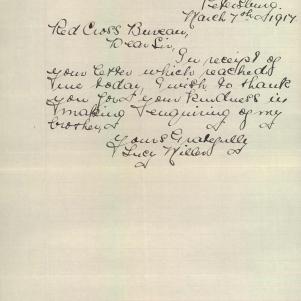 Petersburg.
March 7th 1917
Red Cross Bureau,
Dear Sir,
In receipt of
your letter which reached
me today, I wish to thank
you for your kindness in
making enquiring of my
brother,
Yours Gratefully
Lucy